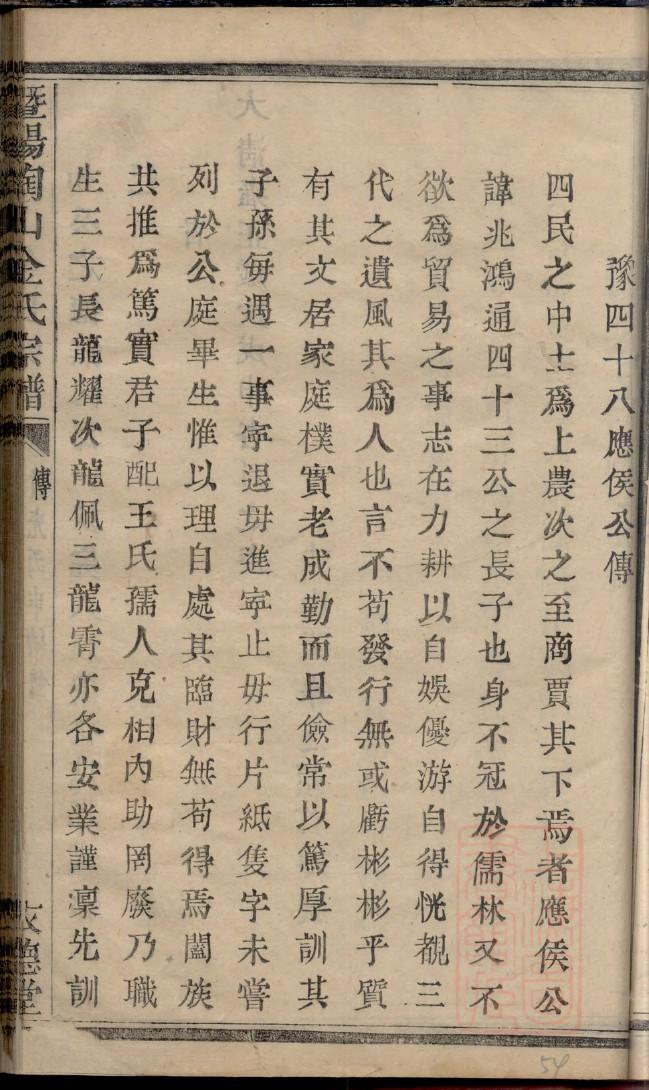 豫四十八應侯公傳
四民之中士爲上農次之至商賈其下焉者應侯公
諱兆鴻通四十三公之長子也身不冠於儒林又不
欲爲貿易之事志在力耕以自娛優游自得恍覩三
代之遺風其爲人也言不苟發行無或虧彬彬乎質
有其文居家庭樸實老成勤而且儉常以篤厚訓其
子孫每遇一事寜退毋進寜止毋行片紙隻字未嘗
列於公庭畢生惟以理自處其臨財無苟得焉闔族
共推爲篤實君子配王氏孺人克相內助罔廢乃職
生三子長龍耀次龍佩三龍霄亦各安業謹凜先訓
暨陽陶山金氏宗譜
傳
敦德堂
54